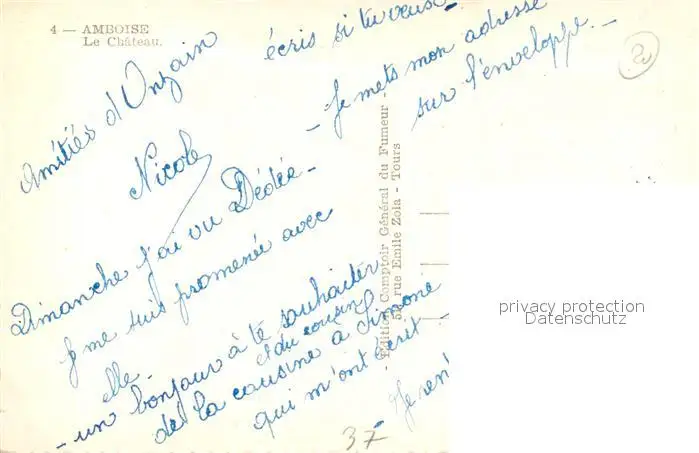 4 — AMBOISE
Le Château.
écris si tu veux
- Je mets mon adresse
sur l'enveloppe. -
2
Amitiés d'Onzain
Nicole
Dimanche j'ai vu Dédée -
je me suis promenée avec
elle -
- un bonjour à te souhaiter
et du cousin
de la cousine à Simone
qui m'ont écrit
- Je
37
Edition Comptoir Général du Fumeur
rue Emile Zola - Tours
privacy protection
Datenschutz